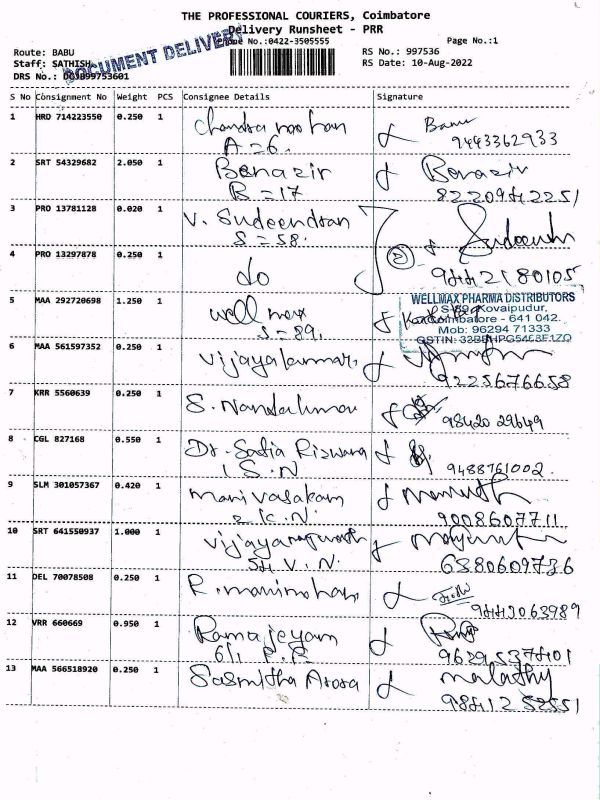 THE PROFESSIONAL COURIERS, Coimbatore
Delivery Runsheet - PRR
Phone No.:0422-3505555
Page No.:1
Route: BABU
RS No.: 997536
Staff: SATHISH
RS Date: 10-Aug-2022
DRS No.:
DOCUMENT DELIVERY
S No Consignment No Weight PCS Consignee Details Signature
1 HRD 714223550 0.250 1 Chandra mohan Banu
A = 6. 9443362933
2 SRT 54329682 2.050 1 Benazir Benazir
B = 17 8220942251
3 PRO 13781128 0.020 1 V. Sudeendran
S = 58.
4 PRO 13297878 0.250 1 do 2 9442180105
5 MAA 292720698 1.250 1 well max
S = 89.
WELLMAX PHARMA DISTRIBUTORS
S-89, Kovaipudur,
Coimbatore - 641 042.
Mob: 96294 71333
6 MAA 561597352 0.250 1 Vijayakumar.
9225676658
7 KRR 5560639 0.250 1 S. Nandakumar 98420 29649
8 CGL 827168 0.550 1 Dr. Sadia Rizwana
1 S. N 9488761002
9 SLM 301057367 0.420 1 manivasakam
2 K. N. 9008607711
10 SRT 641550937 1.000 1
54 V. N. 6380609736
11 DEL 70078508 0.250 1 R. manimohan 9442063989
12 VRR 660669 0.950 1 Ramajeyam
9629537401
13 MAA 566518920 0.250 1 Sasmitha Arora malathy
9841252551